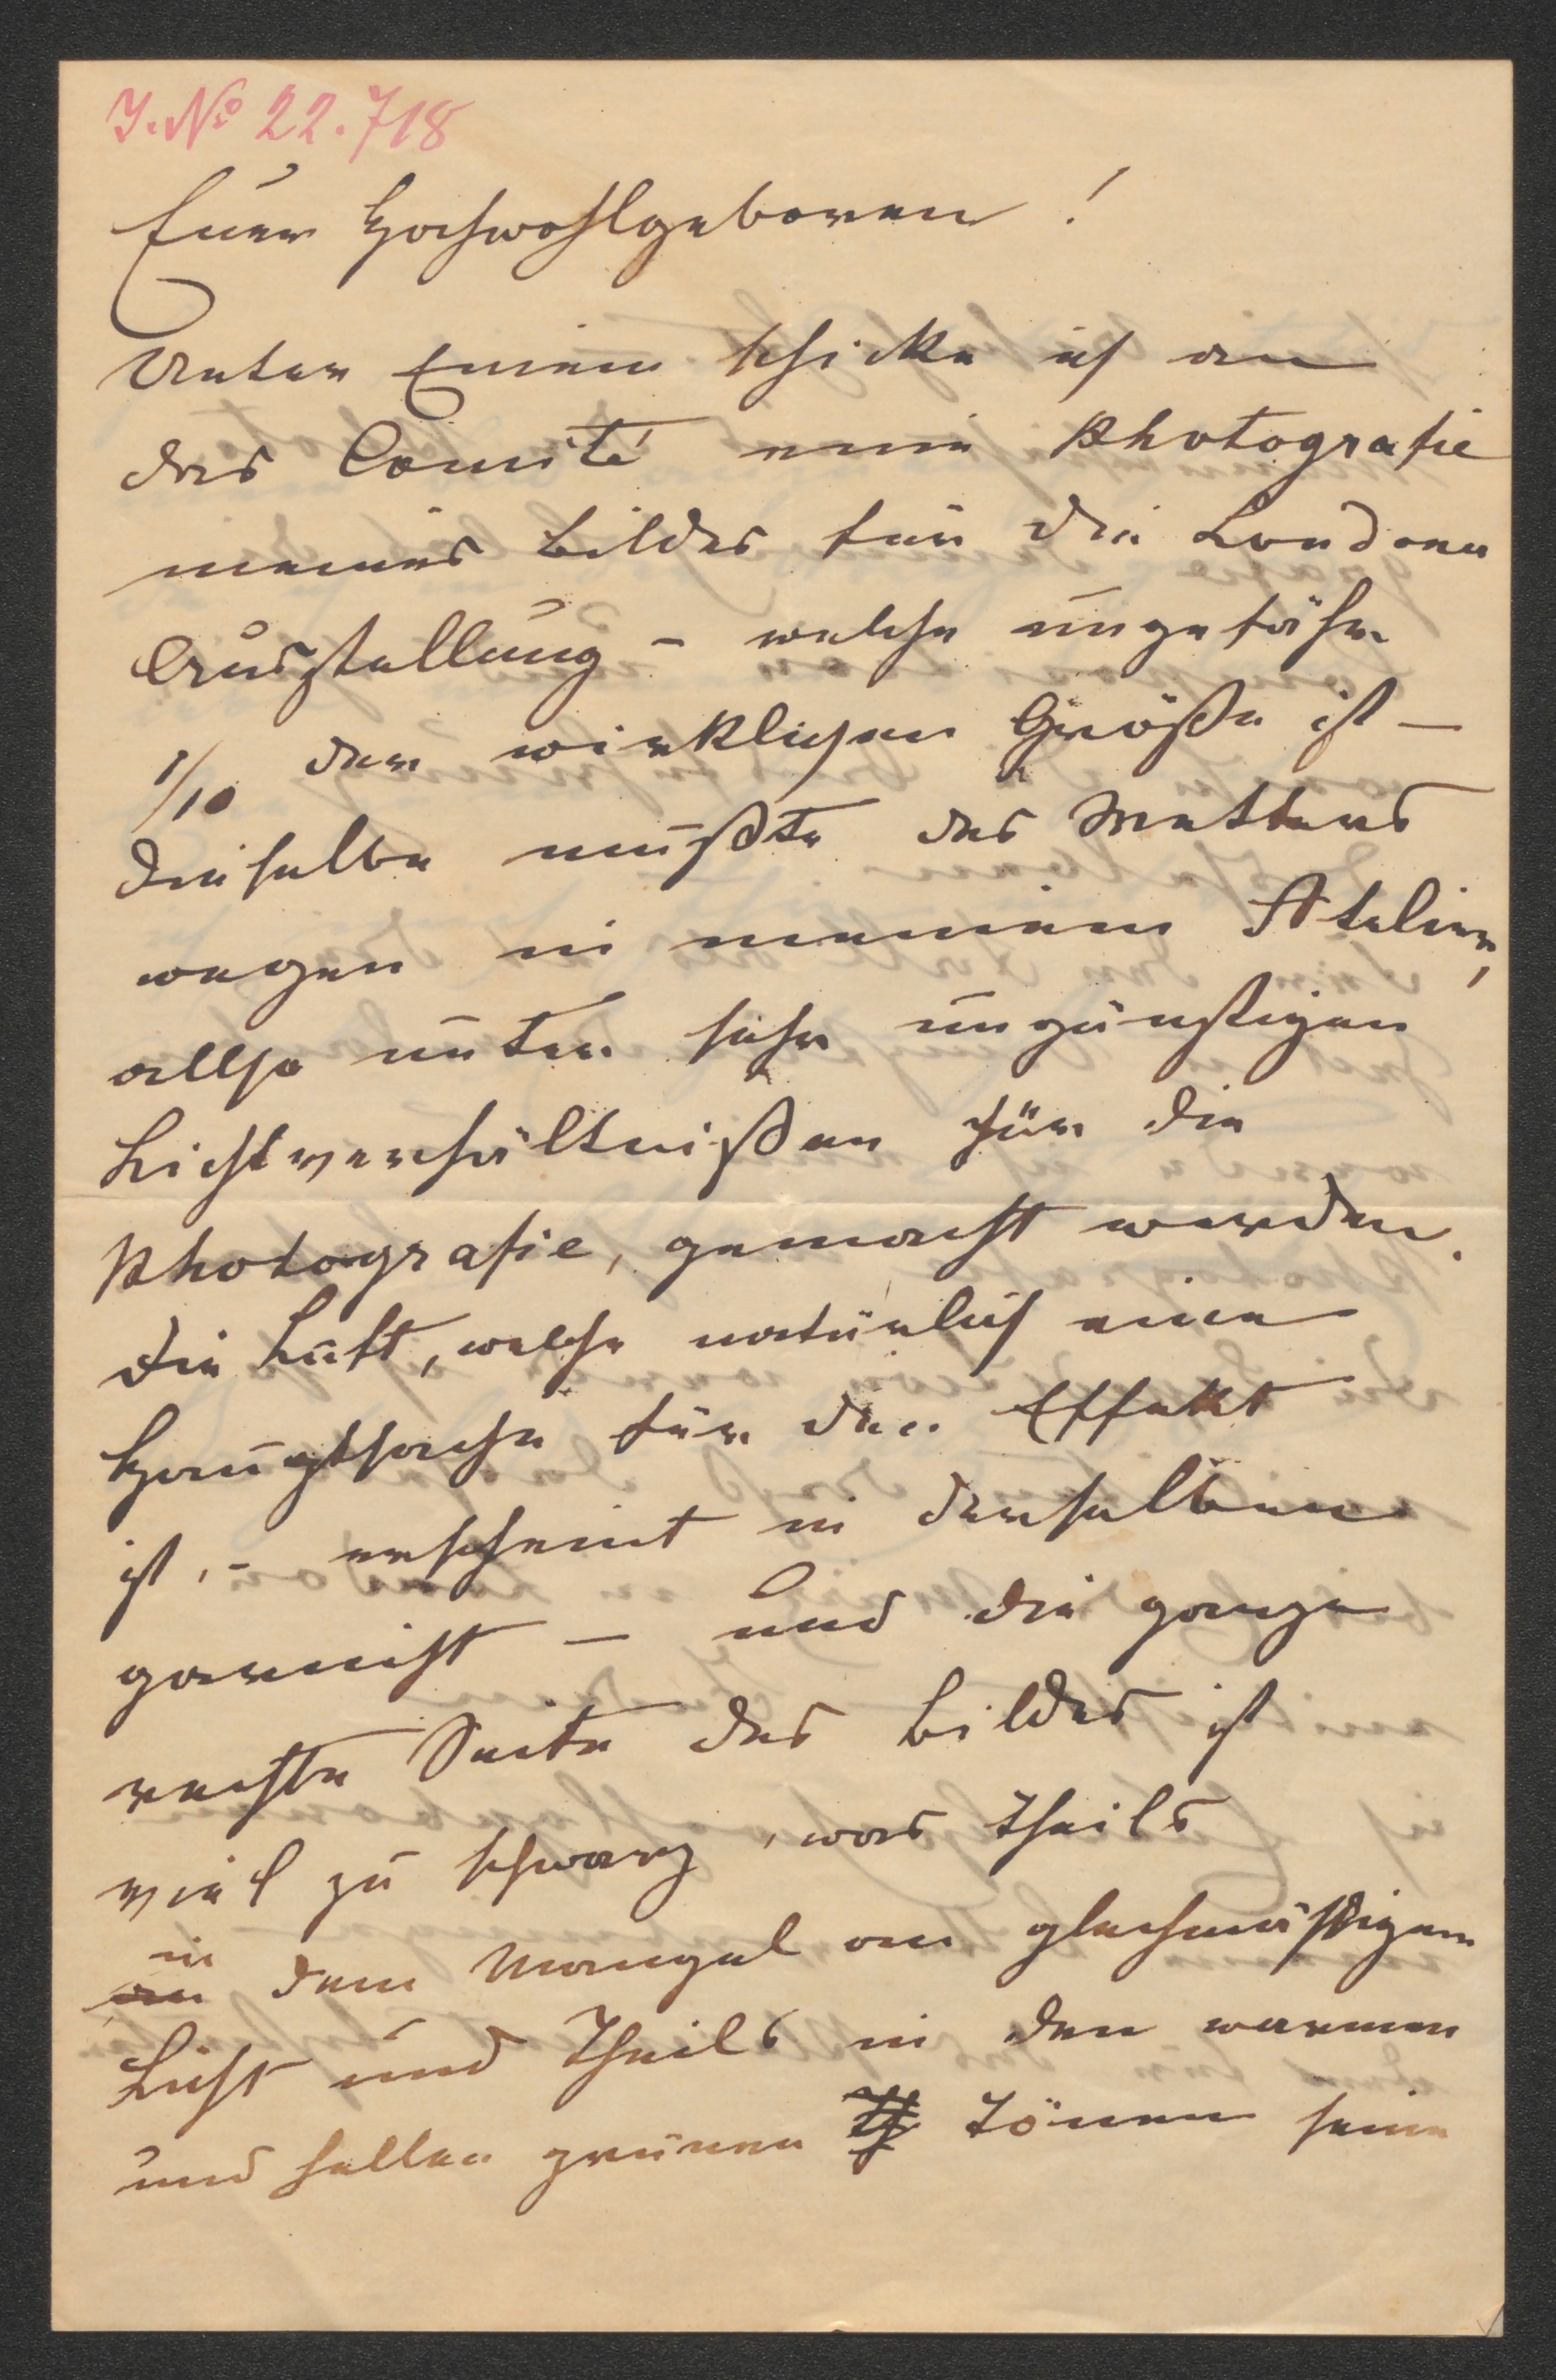 J. No 22.718
Euer Hochwohlgeboren!
Unter Einem schicke ich an
das Comité eine Photografie
meines Bildes für die Londoner
Ausstellung – welche ungefähr
1/10 der wirklichen Größe ist –
Dieselbe mußte des Wetters
wegen in meinem Atelier,
allso unter sehr ungünstigen
Lichtverhältnißen für die
Photografie, gemacht werden.
Die Luft, welche natürlich eine
Hauptsache für den Effekt
ist, – erscheint in derselben
garnicht – und die ganze
rechte Seite des Bildes ist
viel zu schwarz, was theils
in
an dem Mangel an gleichmäßigem
Licht und theils in den warmen
und hellen grünen Tönen seine